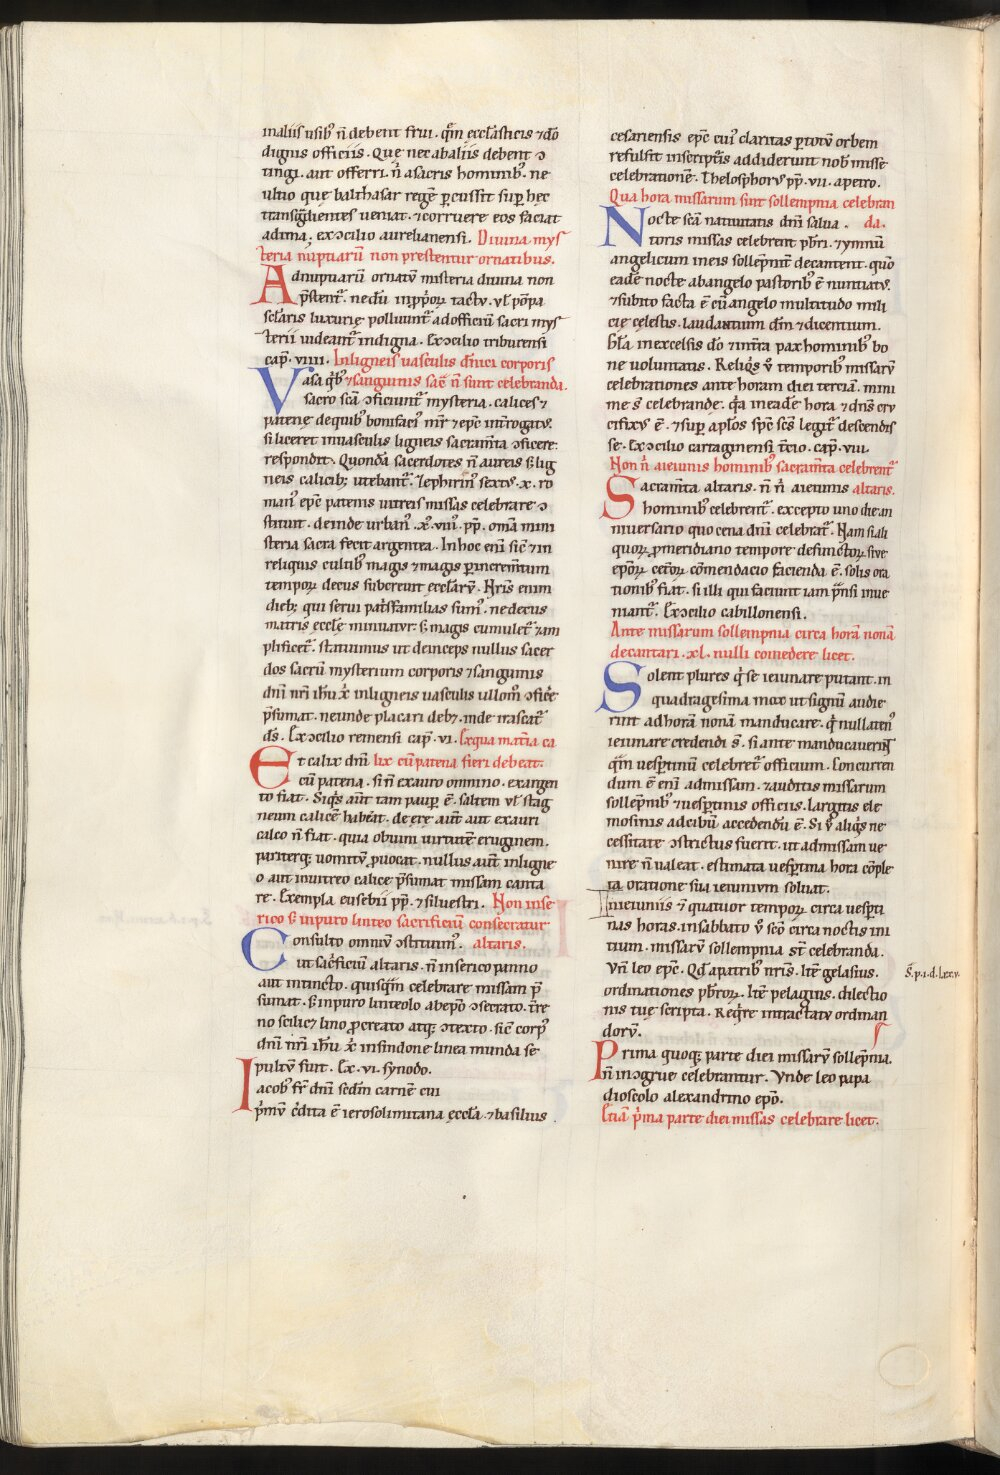 inaliis usib' n̄ debent frui. qm̄ eccl'asticis ⁊ dō
dignis officiis. Que nec ab aliis debent ↄ
tingi. aut offerri. n̄ a sacris hominib'. ne
ultio que balthasar regē p̄cussit sup hec
transgdientes ueniat. ⁊ corruere eos faciat
ad ima; ex ↄcilio aurelianensi. Diuina mys
teria nuptiarū non prestentur ornatibus.
Ad nuptiarū ornatū misteria diuina non
p̄stent̄. ne dū inp̄p̄oꝝ tactu. ul' pōpa
sclaris luxurię polluunt̄ ad officiū sacri mys
terii uideant̄ indigna. Ex ↄcilio triburensi
cap. viiii. In ligneis uasculis dn̄ici corporis
Vasa qb' ⁊ sanguinis sac̄ n̄ sunt celebranda.
sacro scā ↄficiunt̄ mysteria. calices ⁊
patene de quib' bonifaci' mr̄ ⁊ epc̄ int̄rogatus
si liceret in uasculis ligneis sacram̄ta ↄficere.
respondit. Quondā sacerdotes n̄ aureis s; lig
neis calicib; utebant̄. Zephirin' sextus. x. ro
man' epc̄ patenis uitreis missas celebrare ↄ
stituit. deinde urban'. x. viii'. pp. om̄a mini
steria sacra fecit argentea. In hoc eni sic̄ ⁊ in
reliquis cultib' magis ⁊ magis p incrementum
tempoꝝ decus subcreuit ecclarū. Nr̄is enim
dieb; qui serui patsfamilias sum'. ne decus
matris eccle minuatur. s; magis cumulet̄ ⁊ am
plificet̄. statuimus ut deinceps nullus sacer
dos sacrū mysterium corporis ⁊ sanguinis
dn̄i nr̄i ihu x̄ in ligneis uasculis ullom̄ ↄfice
p̄sumat. ne unde placari deb⁊. inde irascat̄
ds̄. Ex ↄcilio remensi cap. vi. Ex qua mat̄ia ca
Et calix dn̄i lix cū patena fieri debeat.
cū patena. si n̄ ex auro omnino. ex argen
to fiat. Siqs aūt tam paup ē. saltem ul' stag
neum calicē habeat. de ere aūt aut ex auri
calco n̄ fiat. quia ob uini uirtutē eruginem.
pariterq; uomitū puocat. nullus aūt in ligne
o aut in uitreo calice p̄sumat missam canta
re. Exempla eusebii pp. ⁊ siluestri. Non in se
rico s; in puro linteo sacrificiū consecratur
Consulto omniū ↄstituim'. altaris.
ut sac̄ficiū altaris. n̄ in serico panno
aut in tincto. quisqm̄ celebrare missam p̄
sumat. s; in puro linteolo ab epō ↄsecrato. t̄re
no scilic⁊ lino pcreato atq; ↄtexto. sic̄ corp'
dn̄i nr̄i ihu x̄ in sindone linea munda se
pultū fuit. Ex. vi. synodo.
Iacob' fr̄ dn̄i sedm̄ carnē cui
p̄mū c̄dita ē ierosolimitana eccl'a. ⁊ basilius
cesariensis epc̄ cui' claritas p totū orbem
refulsit in scriptis addiderunt nob' misse
celebrationē. Thelosphorus pp. vii. a petro.
Qua hora missarum sint sollempnia celebran
Nocte scā natiuitatis dn̄i salua. da.
toris missas celebrent pbr̄i. ⁊ ymnū
angelicum in eis sollēpnit̄ decantent. quo
eadē nocte ab angelo pastorib' ē nuntiatus.
⁊ subito facta ē cū angelo multitudo mili
cię celestis. laudantium dm̄ ⁊ dicentium.
Gl'a in excelsis dō ⁊ in t̄ra pax hominib' bo
ne uoluntatis. Reliqs u̇ temporib' missarū
celebrationes ante horam diei terciā. mini
me s̄ celebrande. qa in eadē hora ⁊ dn̄s cru
cifixus ē. ⁊ sup aplos spc̄ scs̄ legit̄ descendis
se. Ex ↄcilio cartaginensi t̄cio. cap. viii.
Non n̄ a ieiunis hominib' sacram̄ta celebrent̄
Sacram̄ta altaris. n̄ n̄ a ieiunis altaris.
hominib' celebrent̄. excepto uno die an
niuersario quo cena dn̄i celebrat̄. Nam si ali
quoꝝ pmeridiano tempore defunctoꝝ siue
epoꝝ cet̄oꝝ cōmendacio facienda ē. solis ora
tionib' fiat. si illi qui faciunt iam p̄nsi inue
niant̄. Ex ↄcilio cabillonensi.
Ante missarum sollempnia circa horā nonā
decantari. xl. nulli comedere licet.
Solent plures q̄ se ieiunare putant. in
quadragesima mox ut signū audie
rint ad horā nonā manducare. q̄ nullaten'
ieiunare credendi s̄. si ante manducauerint
qm̄ uesptinū celebret̄ officium. Concurren
dum ē eni ad missam. ⁊ auditis missarum
sollēpnib' ⁊ uesptinis officiis. largitis ele
mosinis ad cibū accedendū ē. Si u̇ aliqs ne
cessitate ↄstrictus fuerit. ut ad missam ue
nire n̄ ualeat. estimata uesptina hora cōple
ta oratione sua ieiunium soluat.
In ieiuniis ⁊ quatuor tempoꝝ circa uespti
nas horas. in sabbato u̇ scō circa noctis ini
tium. missarū sollempnia st̄ celebranda.
Vn̄ leo epc̄. Qd̄ a patrib' nr̄is. Itē gelasius.
ordinationes pbr̄oꝝ. Itē pelagius. dilectio
nis tuę scripta. Reqre in tractatu ordinan
dorū.
Prima quoq; parte diei missarū sollēpnia.
n̄ inↄgrue celebrantur. Vnde leo papa
dioscolo alexandrino epō.
Etiā p̄ma parte diei missas celebrare licet.
S̄. p. i. d. lxxv.